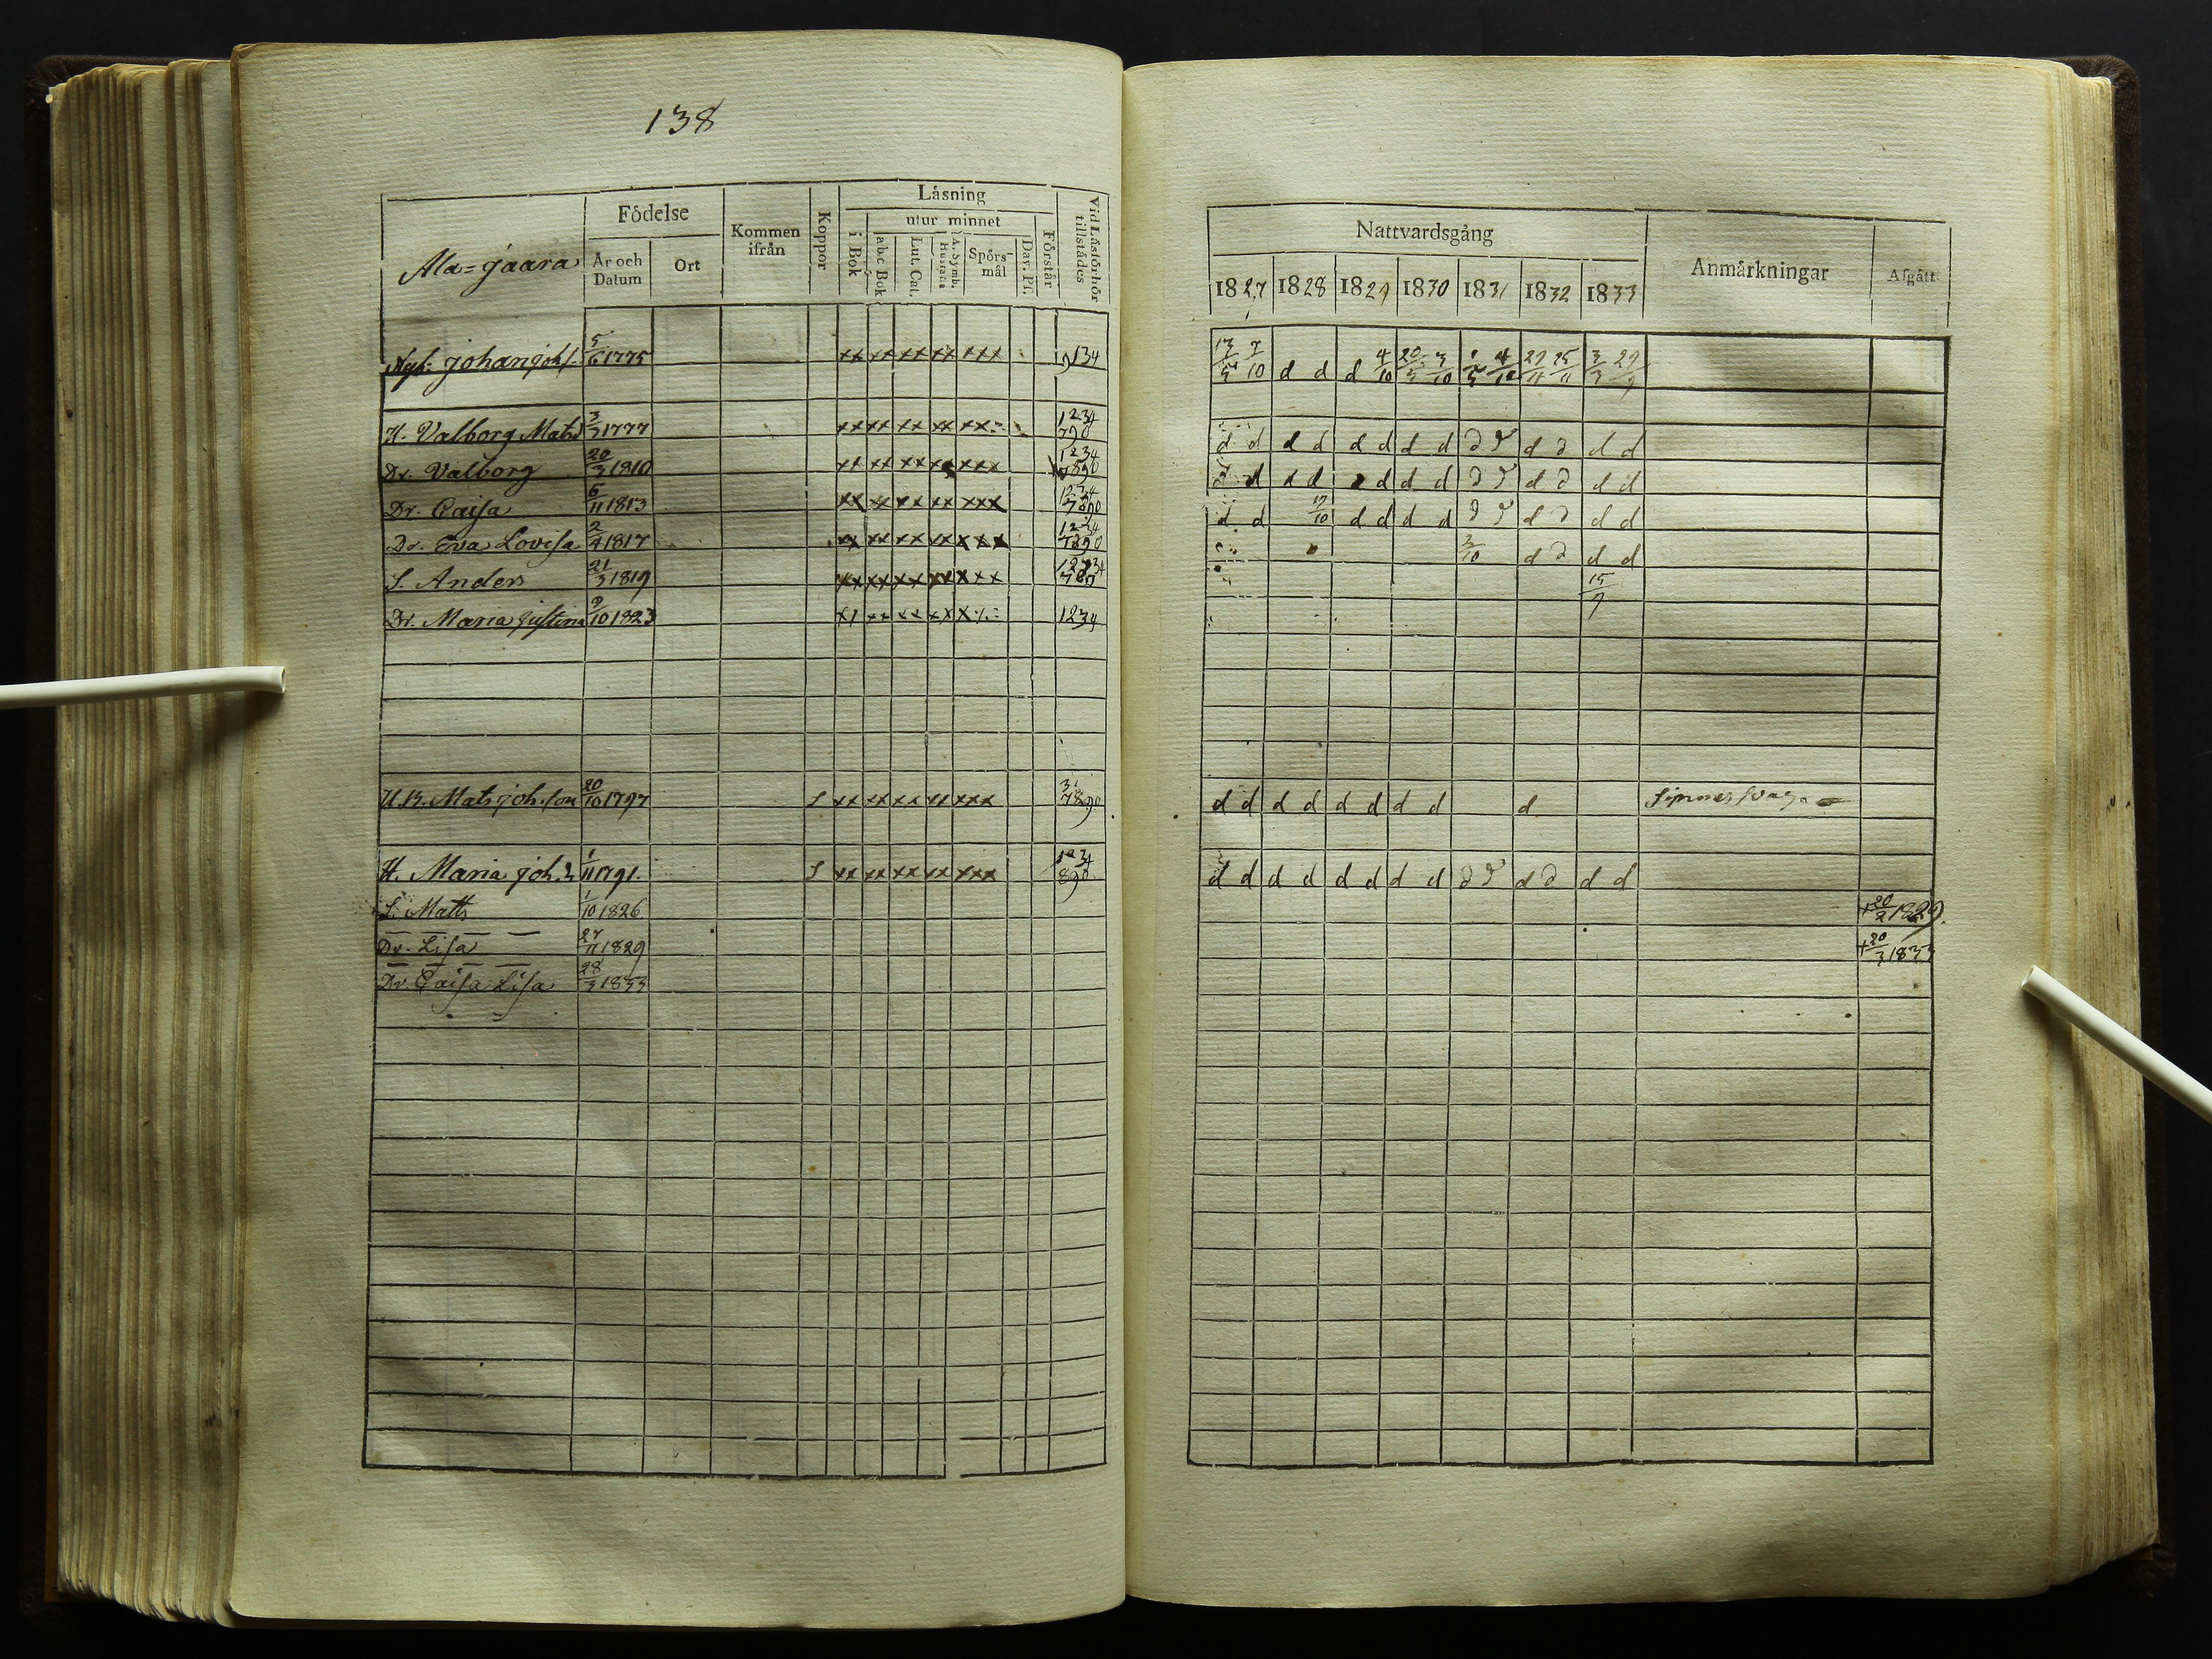 138
Ala=jaara
Födelse
År och Datum
Ort
Kommen ifrån
Koppor
Läsning
i Bok
utur minnet
abc Bok
Lut. Cat.
A. Symb. Hustafla
Spörs-mål
Dav. Ps.
Förstår
Vid Läsförhör tillstädes
johan joh s. 5/6 1775 xx xx xx xx xxx 9134
H. Valborg Matsd 3/3 1777 xx xx xx xx 1234 790
Dr. Valborg 20/3 1810 xx xx xx xxx 1234 7890
Dr. Caisa 6/11 1813 xx xx xx xx xxx 1234
Dr. Eva Lovisa 2/4 1817 xx xx xx xx xxx 1234 7890
S. Anders 21/3 1819 xx xx xx xx xxx 1234 789
Dr. Maria Justina 9/10 1823 1234
Mats joh. son 20/10 1797 S xx xx xx xx xxx 7890
H. Maria joh. 1/11 1791. S xx xx xx xx xxx 1234 890
S. Matts 1/10 1826.
Dr. Lisa 27/11 1829
Dr. Caisa Lisa 28/3 1833
Nattvardsgång
1827 1828 1829 1830 1831 1832 1833
Anmärkningar
Afgått
13/5 7/10 d d d 4/10 20/5 3/10 1/5 4/10 3/3 29/9
d d d d d d d d d d d d d d
d d d d d d d d d d d d d
d d 12/10 d d d d d d d d d d
2/10 d d d d
15/9
d d d d d d d d d
d d d d d d d d d d d d d d
+ 20/2 1829.
+ 20/3 1833